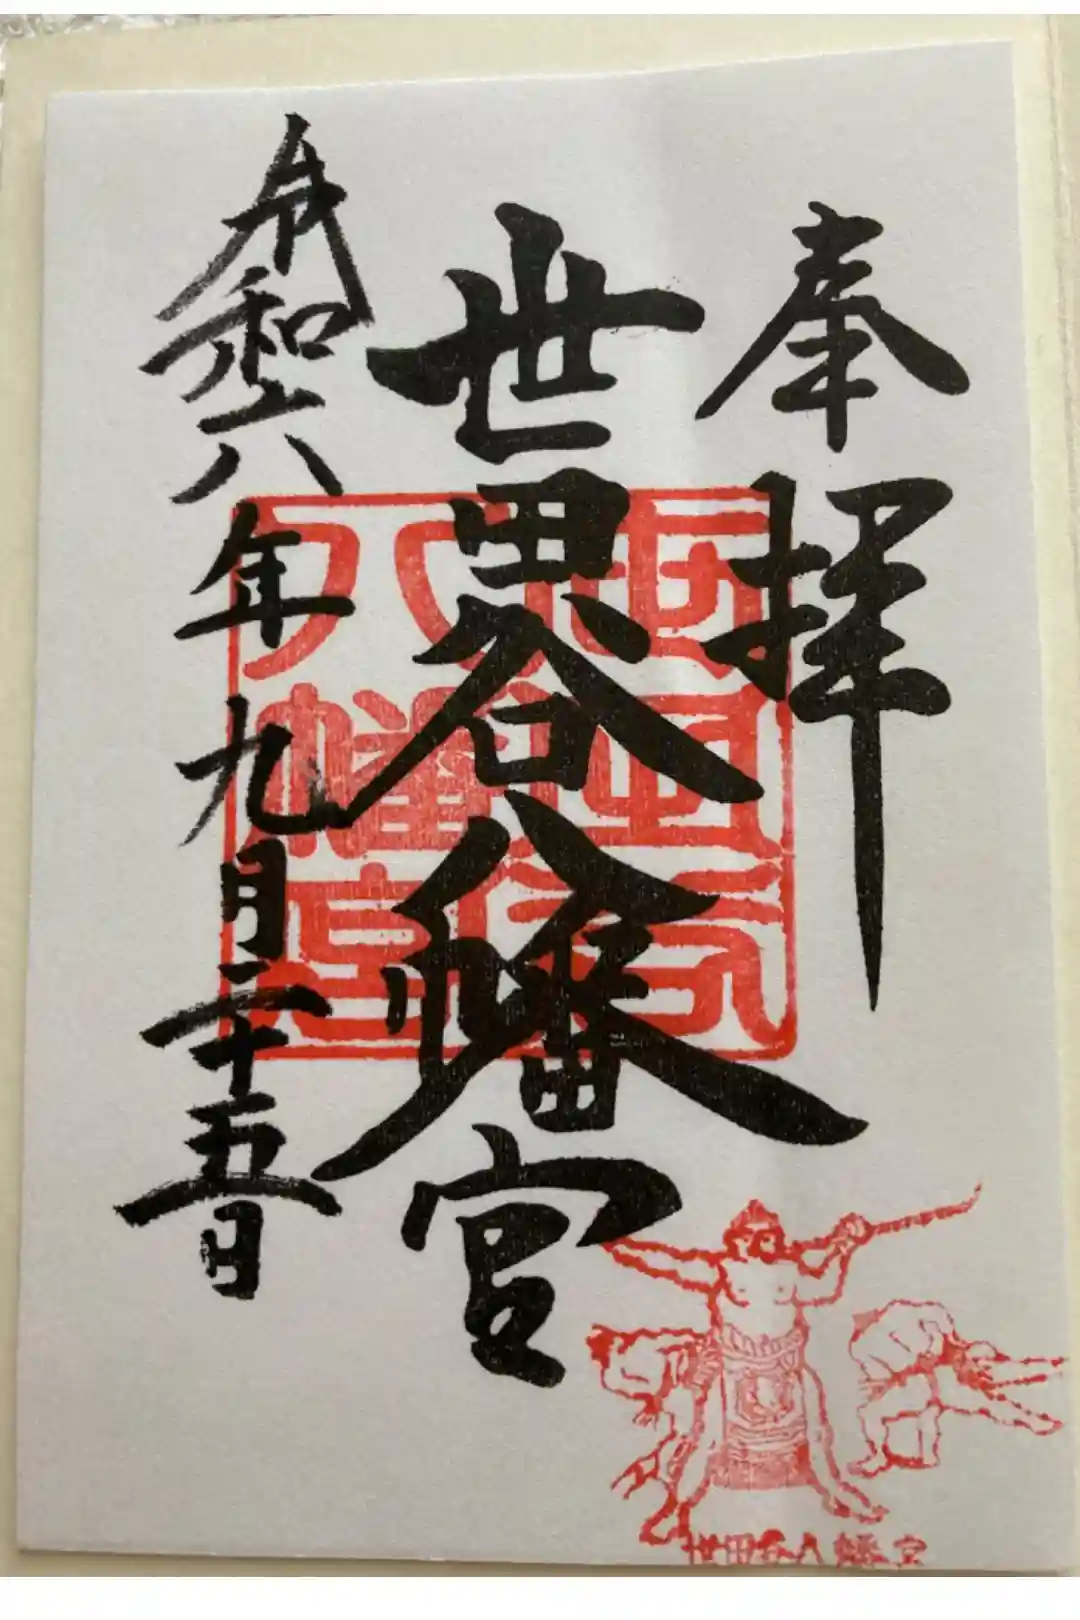 奉拝
世田谷八幡宮
世田谷
八幡宮
令和六年九月二十五日
世田谷八幡宮